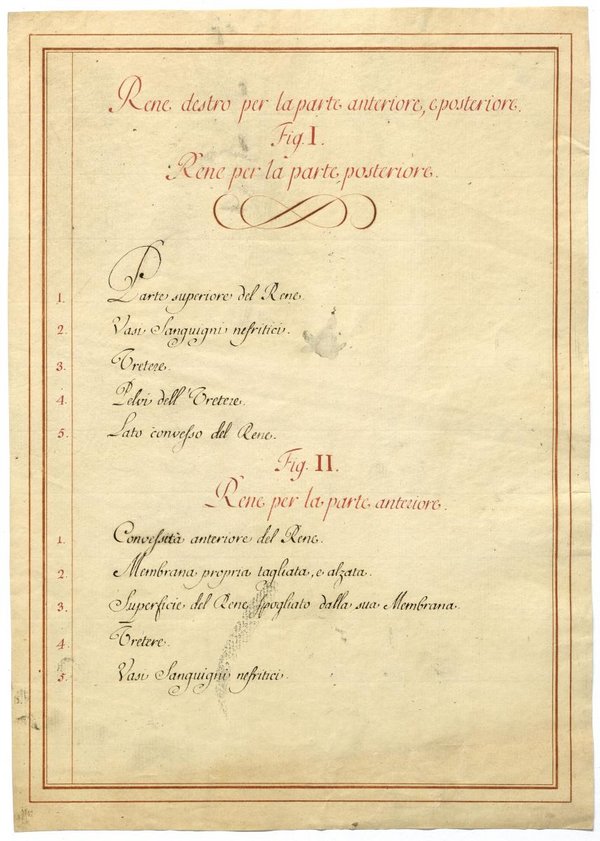 Rene destro per la parte anteriore, e posteriore.
Fig. I.
Rene per la parte posteriore.
1. Parte superiore del Rene.
2. Vasi Sanguigni nefritici.
3. Vretere.
4. Pelvi dell'Vretere.
5. Lato convesso del Rene.
Fig. II.
Rene per la parte anteriore.
1. Convessità anteriore del Rene.
2. Membrana propria tagliata, e alzata.
3. Superficie del Rene spogliato dalla sua Membrana.
4. Vretere.
5. Vasi Sanguigni nefritici.